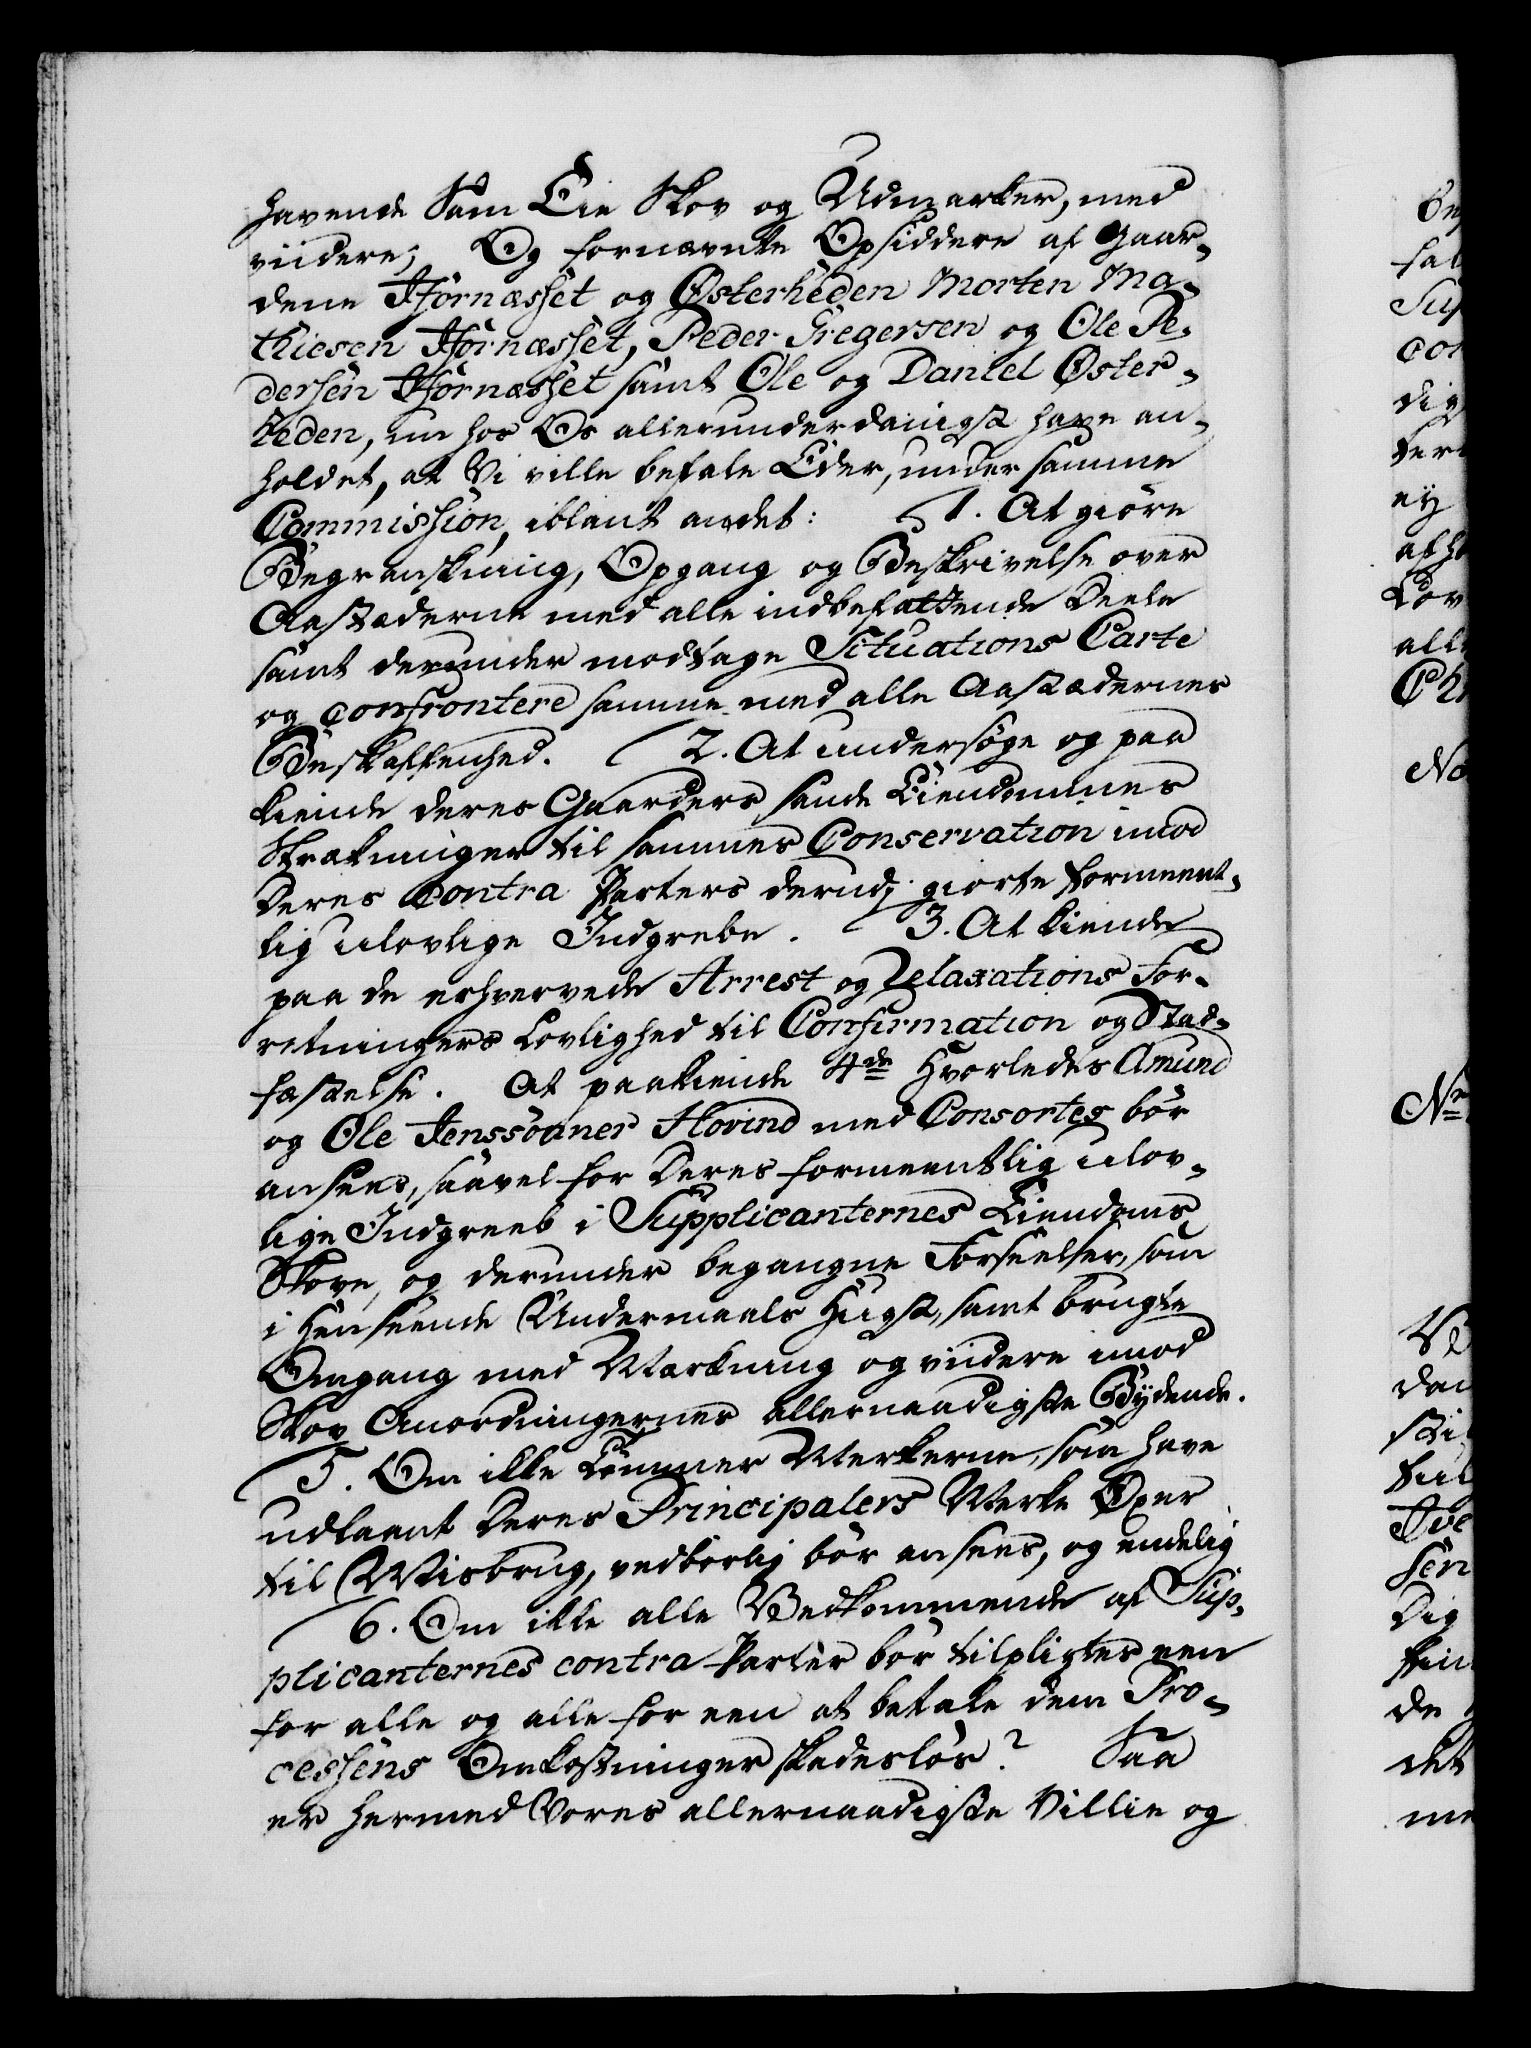 havende Sam Eie Skov og Udmarker, med
viidere; Og fornævnte Opsiddere af Gaar-
dene Hörnæsset og Østerheden Morten Ma-
thiesen Hörnæsset, Peder Gregersen og Ole Pe-
dersen Hörnæsset samt Ole og Daniel Øster-
heden, nu hos Os allerunderdanigst have an-
holdet, at Vi ville befale Eder, under samme
Commission, iblant andet: 1. At giöre
Begranskning, Opgang og Beskrivelse over
Aastæderne med alle indbefattende Deele
samt derunder modtage Situations Carte
og confrontere samme med alle Aastædernes
Beskaffenhed. 2. At undersøge og paa
kiende deres Gaarders sande Eiendommes
Strækninger til sammes Conservation imod
Deres Contra Parters derudi giorte formeent-
lig ulovlige Indgrebe. 3. At kiende
paa de erhvervede Arrest og Relaxations For-
retningers Lovlighed til Confirmation og Stad-
fæstelse. At paakiende 4de Hvorledes Amund
og Ole Jenssönner Hovind med Consortes bör
ansees, saavel for Deres formeentlig ulov-
lige Indgreeb i Supplicanternes Eiendoms
Skove, og derunder begangne Forseelser, som
i Henseende Undermaals Hugst, samt brugte
Omgang med Mærkning og viidere imod
Skov Anordningernes allernaadigste Bydende.
5. Om ikke Tömmer Merkerne, som have
udlaant Deres Principalers Merke Öxer
til Misbrug, vedbörlig bör ansees, og endelig
6. Om ikke alle Vedkommende af Sup-
plicanternes contra Parter bör tilpligtes een
for alle og alle for een at betale dem Pro-
cessens Omkostninger skadeslös? Saa
er hermed Vores allernaadigste Villie og